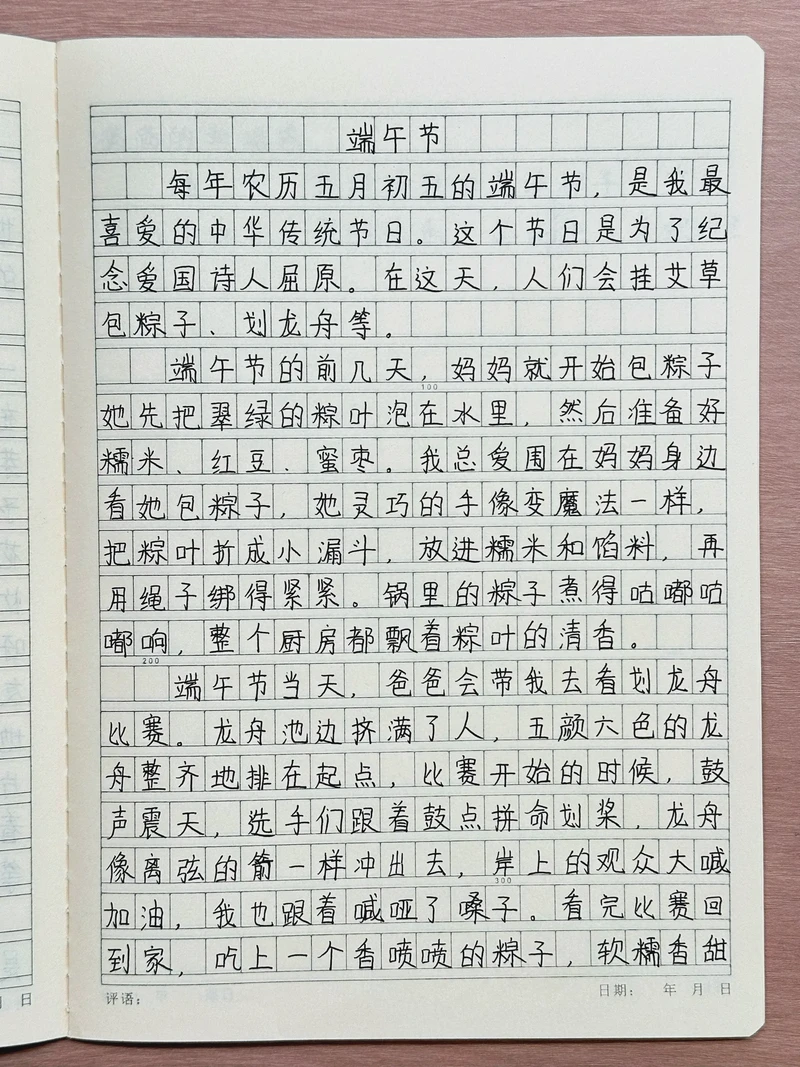 端午节
每年农历五月初五的端午节，是我最
喜爱的中华传统节日。这个节日是为了纪
念爱国诗人屈原。在这天，人们会挂艾草
包粽子、划龙舟等。
端午节的前几天，妈妈就开始包粽子
100
她先把翠绿的粽叶泡在水里，然后准备好
糯米、红豆、蜜枣。我总爱围在妈妈身边
看她包粽子，她灵巧的手像变魔法一样，
把粽叶折成小漏斗，放进糯米和馅料，再
用绳子绑得紧紧。锅里的粽子煮得咕嘟咕
嘟响，整个厨房都飘着粽叶的清香。
200
端午节当天，爸爸会带我去看划龙舟
比赛。龙舟池边挤满了人，五颜六色的龙
舟整齐地排在起点，比赛开始的时候，鼓
声震天，选手们跟着鼓点拼命划桨，龙舟
像离弦的箭一样冲出去，岸上的观众大喊
300
加油，我也跟着喊哑了嗓子。看完比赛回
到家，吃上一个香喷喷的粽子，软糯香甜
评语： 日期： 年 月 日
月 日